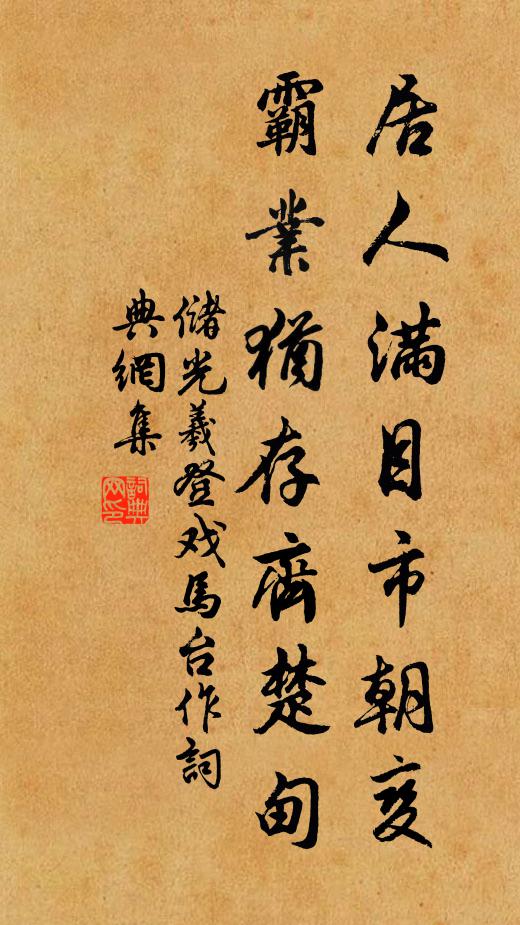 居人满目市朝変
霸業猶存齊楚甸
儲光羲登戏馬台作詞
典網集
詞典网印